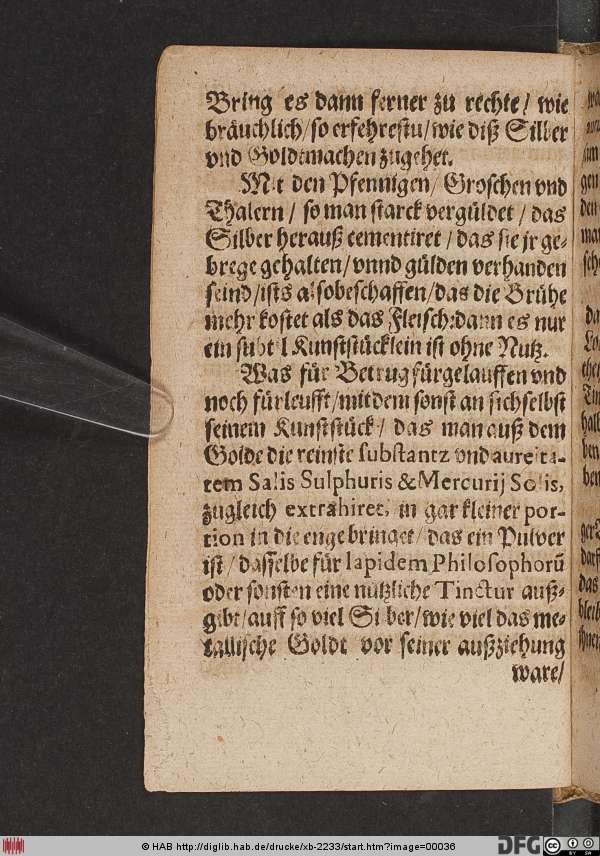 Bring es dann ferner zu rechte / wie
bräuchlich / so erfehrestu / wie diß Silber
vnd Goldtmachen zugehet.
Mit den Pfennigen / Groschen vnd
Thalern / so man starck vergüldet / das
Silber herauß cementiret / das sie jr ge-
brege gehalten / vnnd gülden verhanden
seind / ists also beschaffen / das die Brühe
mehr kostet als das Fleisch: dann es nur
ein subtil Kunststücklein ist ohne Nutz.
Was für Betrug fürgelauffen vnd
noch fürleufft / mit dem sonst an sich selbst
feinem Kunststück / das man auß dem
Golde die reinste substantz vnd aureita-
tem Salis Sulphuris & Mercurij Solis,
zugleich extrahiret, in gar kleiner por-
tion in die enge bringet / das ein Pulver
ist / dasselbe für lapidem Philosophorū
oder sonsten eine nützliche Tinctur auß-
gibt / auff so viel Silber / wie viel das me-
tallische Goldt vor seiner außziehung
ware /
© HAB http://diglib.hab.de/drucke/xb-2233/start.htm?image=00036
DFG
cc
BY SA